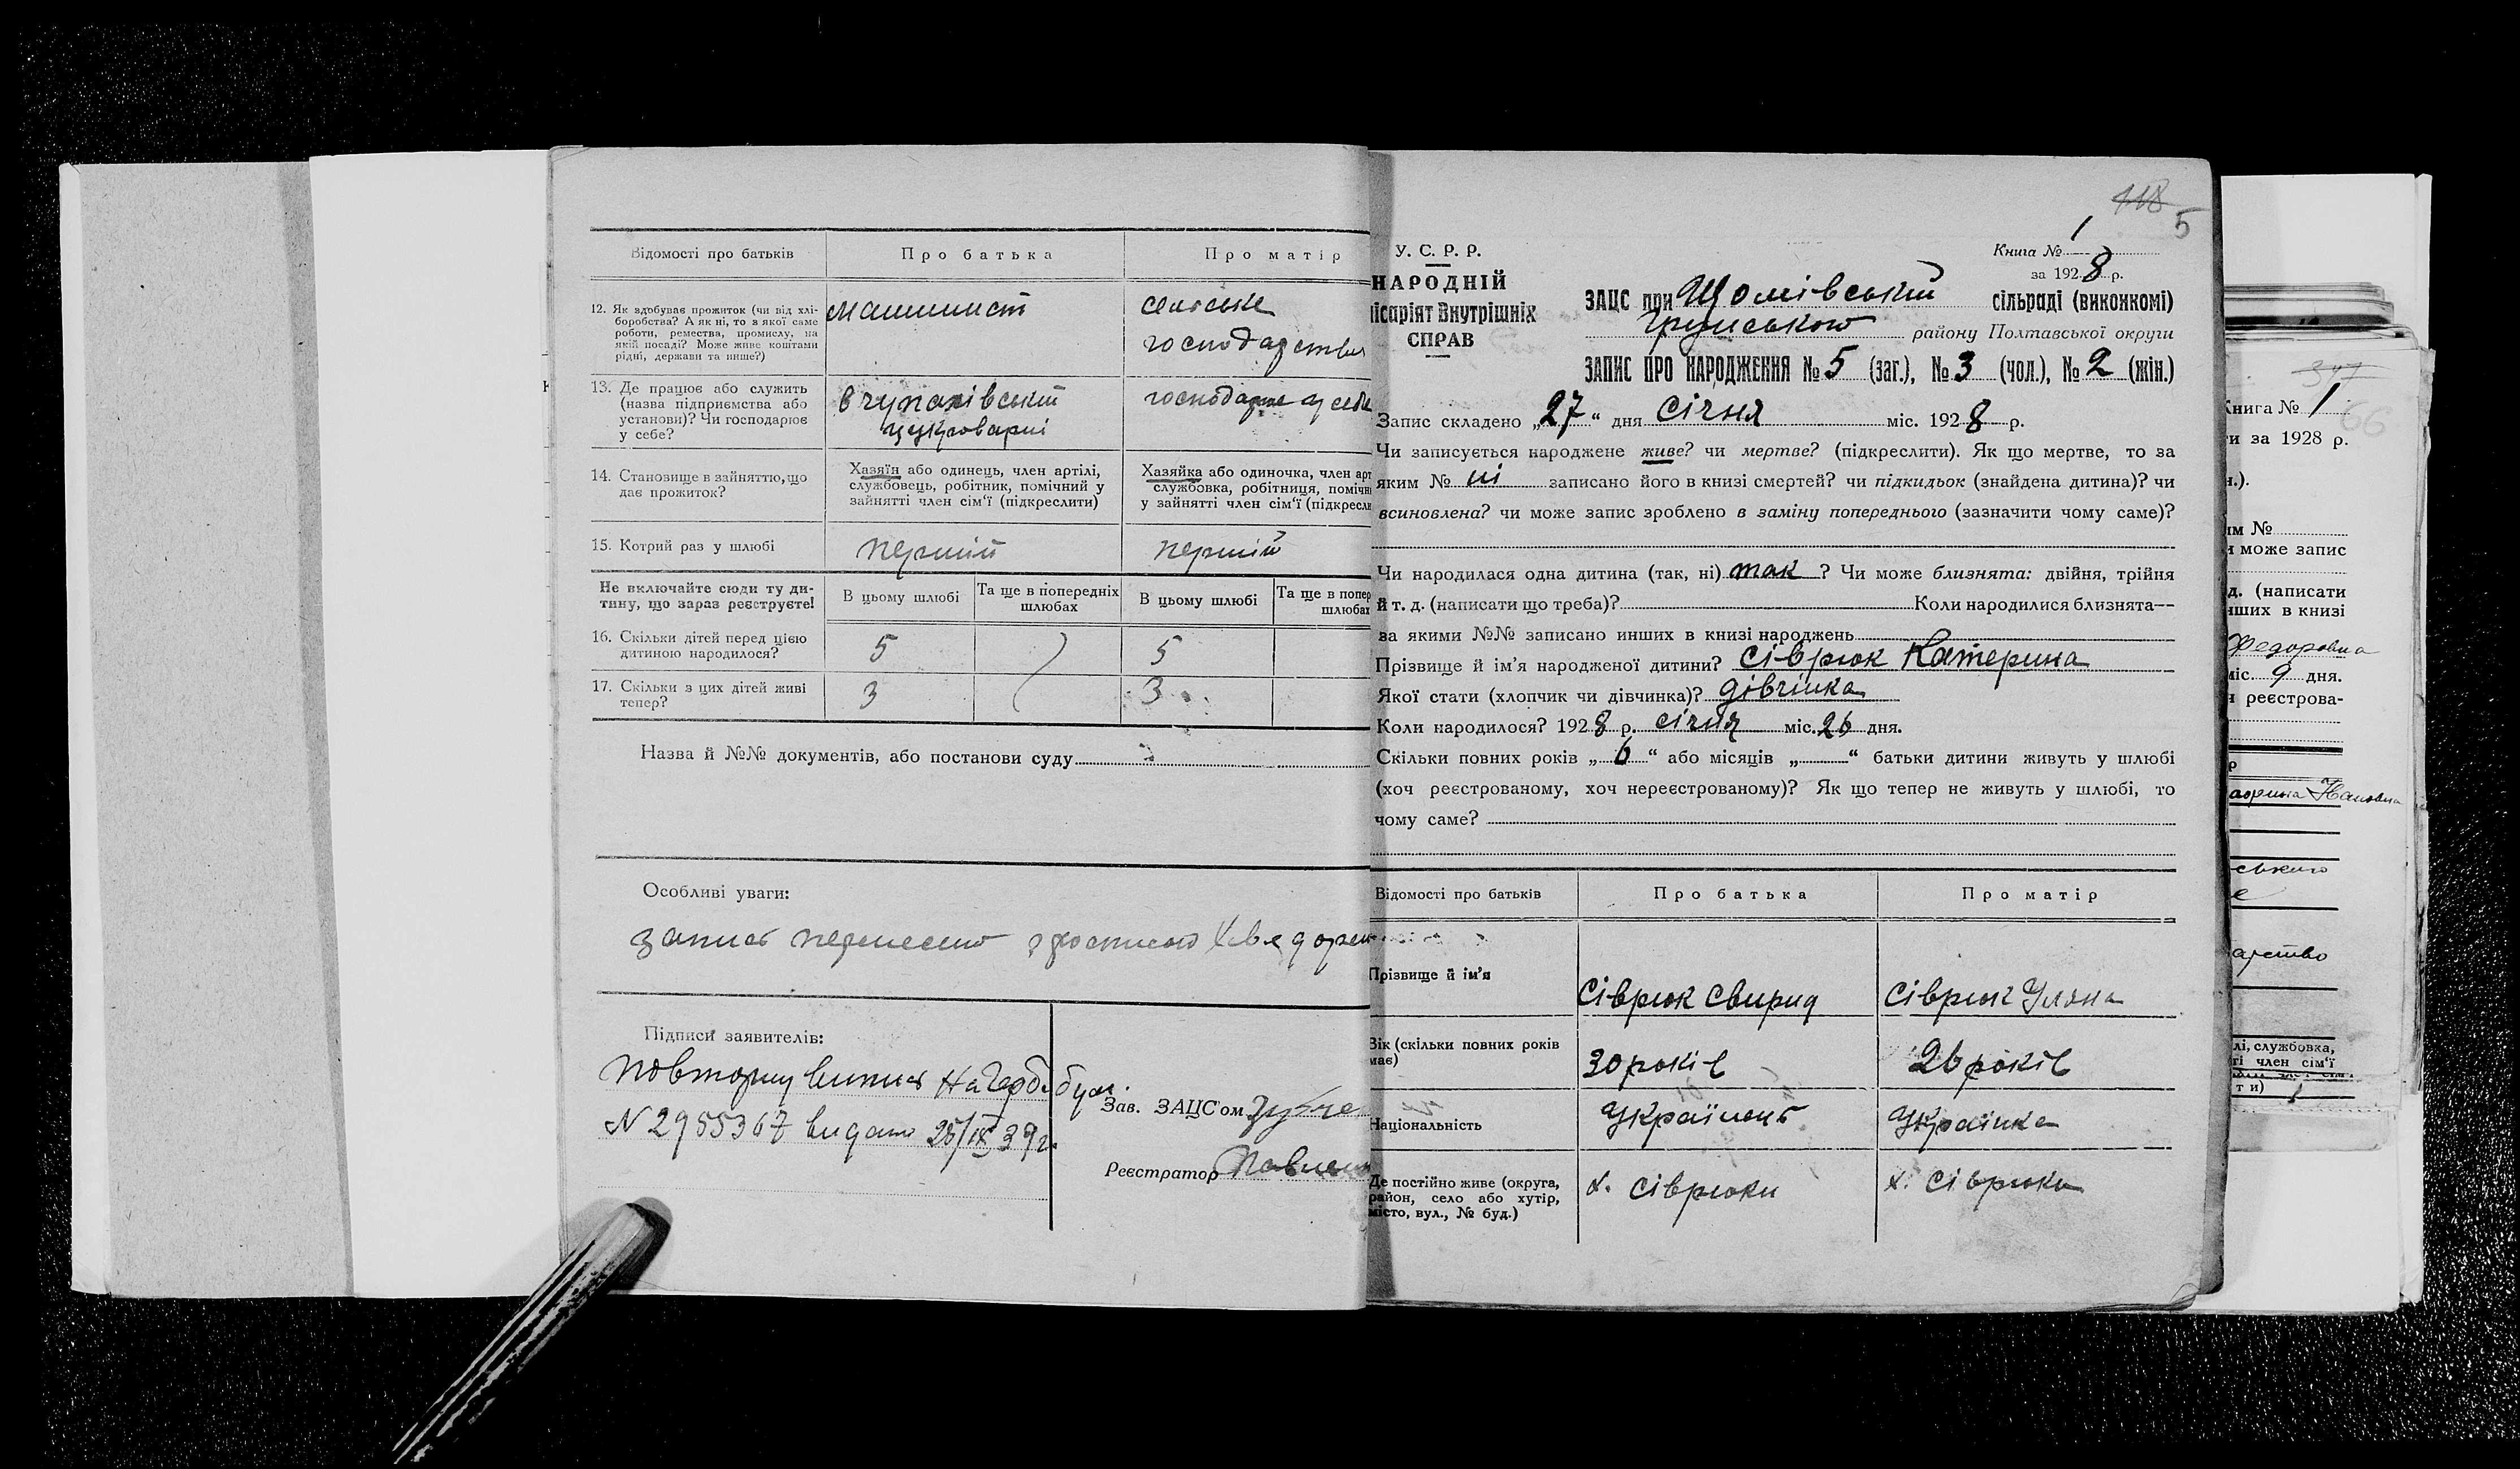 Відомості про батьків
Про батька
Про матір
12. Як здобуває прожиток (чи від хлі-
боробства? А як ні, то з якої саме
роботи, ремества, промислу, на
якій посаді? Може живе коштами
рідні, держави та инше?)
машинист
сельське
господарство
13. Де працює або служить
(назва підприємства або
установи)? Чи господарює
у себе?
в чупахівський
цукроварні
господарює у себе
14. Становище в зайняттю, що
дає прожиток?
Хазяїн або одинець, член артілі,
службовець, робітник, помічний у
зайнятті член сім‘ї (підкреслити)
Хазяйка або одиночка, член арт
службовка, робітниця, помічн
у зайнятті член сім‘ї (підкресл
15. Котрий раз у шлюбі
перший
перший
Не включайте сюди ту ди-
тину, що зараз реєструєте!
В цьому шлюбі
Та ще в попередніх
шлюбах
В цьому шлюбі
Та ще в попер
шлюбах
16. Скільки дітей перед цією
дитиною народилося?
5
5
17. Скільки з цих дітей живі
тепер?
3
3
Назва й №№ документів, або постанови суду
Особливі уваги:
Запис перенесено
Підписи заявителів:
Повторну випис на герб. бум.
N 2955367 видано 25/IX 39 г.
Зав. ЗАЦС‘ом
Реєстратор
118
5
У. С. Р. Р.
НАРОДНІЙ
місаріят Внутрішніх
СПРАВ
Книга № 1
за 1928 р.
ЗАЦС при Шомівський сільраді (виконкомі)
Грунського району Полтавської округи
ЗАПИС ПРО НАРОДЖЕННЯ № 5 (заг.), № 3 (чол.), № 2 (жін.)
Запис складено „27“ дня січня міс. 1928 р.
Чи записується народжене живе? чи мертве? (підкреслити). Як що мертве, то за
яким № ні записано його в книзі смертей? чи підкидьок (знайдена дитина)? чи
всиновлена? чи може запис зроблено в заміну попереднього (зазначити чому саме)?
Чи народилася одна дитина (так, ні) так ? Чи може близнята: двійня, трійня
й т. д. (написати що треба)? Коли народилися близнята—
за якими №№ записано инших в книзі народжень
Прізвище й ім‘я народженої дитини? Сіврюк Катерина
Якої стати (хлопчик чи дівчинка)? дівчінка
Коли народилося? 1928 р. січня міс. 26 дня.
Скільки повних років „6“ або місяців „ “ батьки дитини живуть у шлюбі
(хоч реєстрованому, хоч нереєстрованому)? Як що тепер не живуть у шлюбі, то
чому саме?
Відомості про батьків
Про батька
Про матір
Прізвище й ім‘я
Сіврюк Свирид
Сіврюк Уляна
Вік (скільки повних років
має)
30 років
26 років
Національність
Українець
Українка
Де постійно живе (округа,
район, село або хутір,
місто, вул., № буд.)
х. Сіврюки
х. Сіврюки
347
Книга № 1
66
ти за 1928 р.
н.).
им №
и може запис
д. (написати
нших в книзі
Федоровна
міс. 9 дня.
н реєстрова-
р
ського
арство
лі, службовка,
ті член сім‘ї
ти)